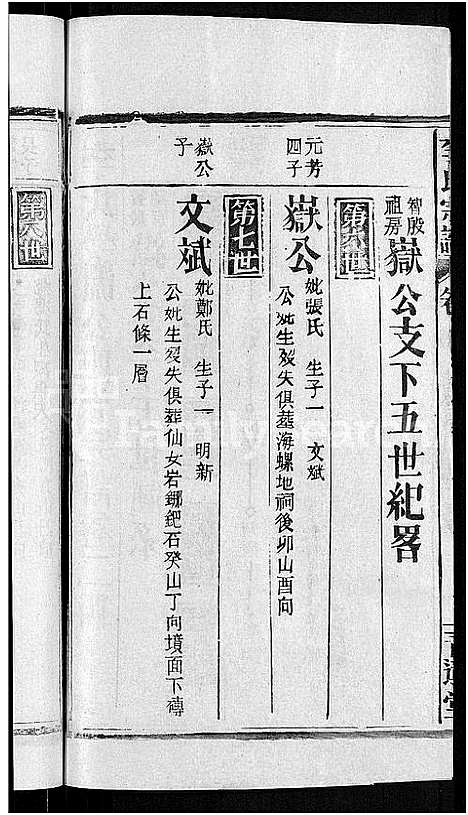 智殷
祖房
嶽公支下五世紀畧
第六世
元芳
四子
嶽公
妣張氏 生子一 文斌
公妣生歿失俱葬海螺地祠後卯山酉向
第七世
嶽公
子
文斌
妣鄭氏 生子一 明新
公妣生歿失俱葬仙女岩鎯鈀石癸山丁向墳面下磚
上石條一層
第八世